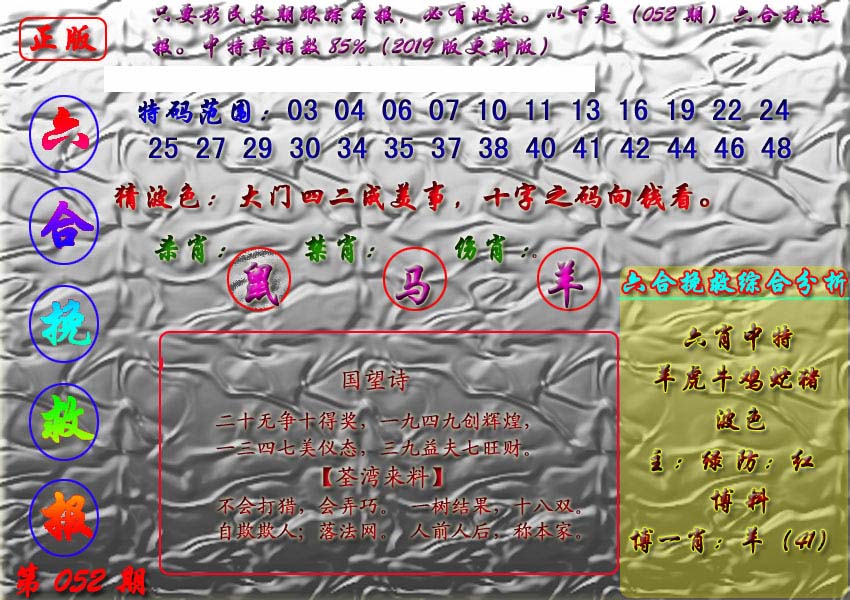 正版
只要彩民长期跟踪本报，必有收获。以下是（052期）六合挽救
报。中特率指数85%（2019版更新版）
六
合
挽
救
报
第052期
特码范围：03 04 06 07 10 11 13 16 19 22 24
25 27 29 30 34 35 37 38 40 41 42 44 46 48
猜波色：大门四二成美事，十字之码向钱看。
杀肖：鼠 禁肖：马 伤肖：羊
国望诗
二十无争十得奖，一九四九创辉煌，
一三四七美仪态，三九益夫七旺财。
【荃湾来料】
不会打猎，会弄巧。 一树结果，十八双。
自欺欺人；落法网。 人前人后，称本家。
六合挽救综合分析
六肖中特
羊虎牛鸡蛇猪
波色
主：绿防：红
博料
博一肖：羊（41）